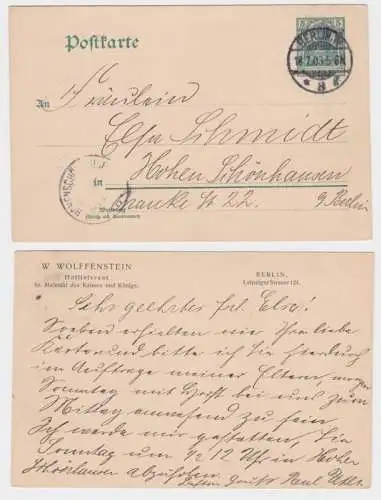 Postkarte
5
BERLIN, W.
18.7.03. 5-6N.
* 8 f
An Fräulein
Elsa Schmidt
in Hohen Schönhausen
Wohnung
(Straße und Hausnummer)
22.
b/Berlin
W. WOLFFENSTEIN
Hoflieferant
Sr. Majestät des Kaisers und Königs.
BERLIN,
Leipziger Strasse 121.
Sehr geehrter frl. Else!
Soeben erhielten wir Ihre liebe
Karte und bitte ich Sie hierdurch
im Auftrage meiner Eltern, morgen
Sonntag mit bei uns zum
Mittag anwesend zu sein
Ich werde mir gestatten, Sie
Sonntag um 1/2 12 Uhr in Hohen
Schönhausen abzuholen.
Paul